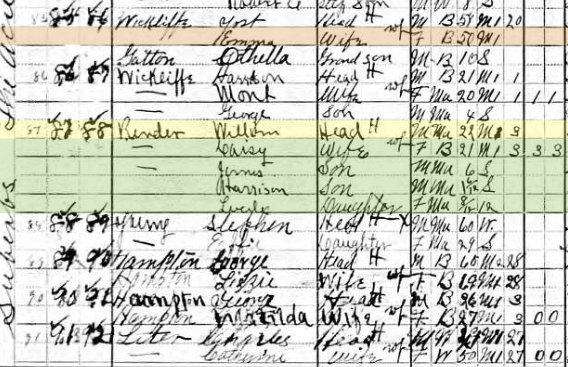 Robert C Step Son M W 8 S
Wickliffe Yost Head M B 54 M1 20
Emma Wife F B 50 M1
Gatton Othella Grand son M B 10 S
86 87 Wickliffe Harrison Head M B 21 M1 1
— Mont Wife F Mu 20 M1 1 1 1
George Son M Mu 4 S
87 88 Render William Head M Mu 22 M1 3
— Daisy Wife F B 21 M1 3 3 3
— James Son M Mu 6 S
Harrison Son M Mu S
Daughter F Mu
88 89 Stephen Head M Mu 60 W
— Daughter F Mu 29 S
89 90 Hampton George Head M B 60 M2 28
Hampton Lizzie Wife F B M1 28
90 91 Hampton George Head M B 36 M1 3
Hampton Matilda Wife F B 27 M1 3 0 0
91 92 Liter Charles Head M W M1 27
— Catherine Wife F W 50 M1 27 0 0
Suburbs